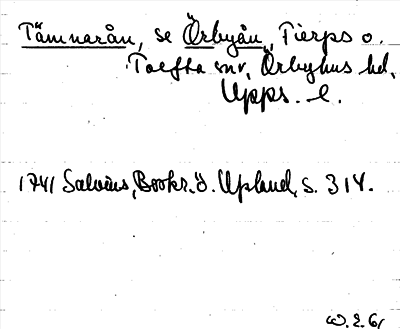 Tämnarån, se Örbyån, Tierps o.
Tolfta snr, Örbyhus hd,
Upps. l.
1741 Salvius, Beskr. ö. Upland, s. 314.
W.E. 61